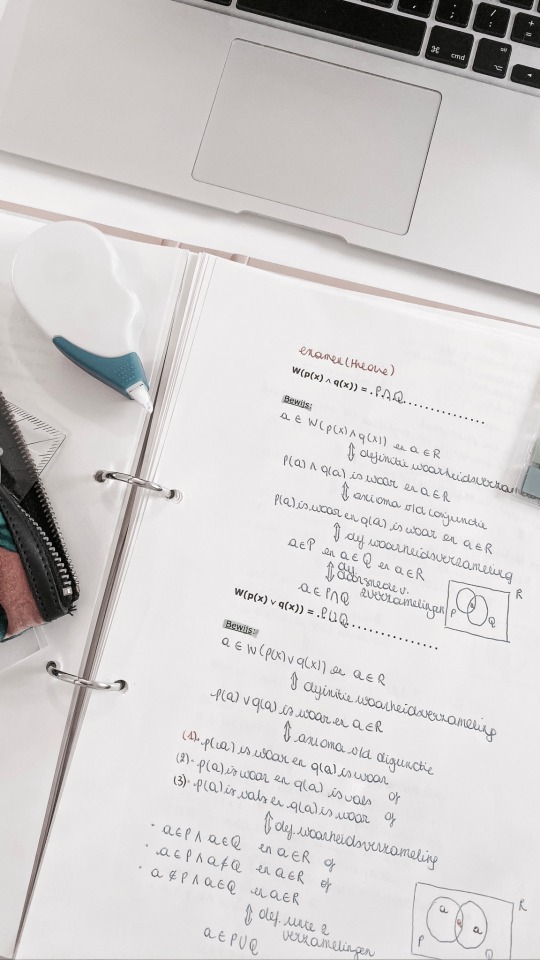 cmd
examen (theorie)
W(p(x) ∧ q(x)) = .P∩Q................
Bewijs:
a ∈ W(p(x) ∧ q(x)) en a ∈ R
⇕ definitie waarheidsverzam
p(a) ∧ q(a) is waar en a ∈ R
⇕ axioma v/d conjunctie
p(a) is waar en q(a) is waar en a ∈ R
⇕ def waarheidsverzameling
a ∈ P en a ∈ Q en a ∈ R
⇕ def doorsnede v.
a ∈ P∩Q 2 verzamelingen
R
P Q
W(p(x) ∨ q(x)) = .P∪Q................
Bewijs:
a ∈ W(p(x) ∨ q(x)) en a ∈ R
⇕ definitie waarheidsverzameling
p(a) ∨ q(a) is waar en a ∈ R
⇕ axioma v/d disjunctie
(1)• p(a) is waar en q(a) is waar
(2)• p(a) is waar en q(a) is vals of
(3)• p(a) is vals en q(a) is waar of
⇕ def. waarheidsverzameling
• a ∈ P ∧ a ∈ Q en a ∈ R of
• a ∈ P ∧ a ∉ Q en a ∈ R of
• a ∉ P ∧ a ∈ Q en a ∈ R
⇕ def. unie 2
a ∈ P∪Q verzamelingen
R
a a
P Q